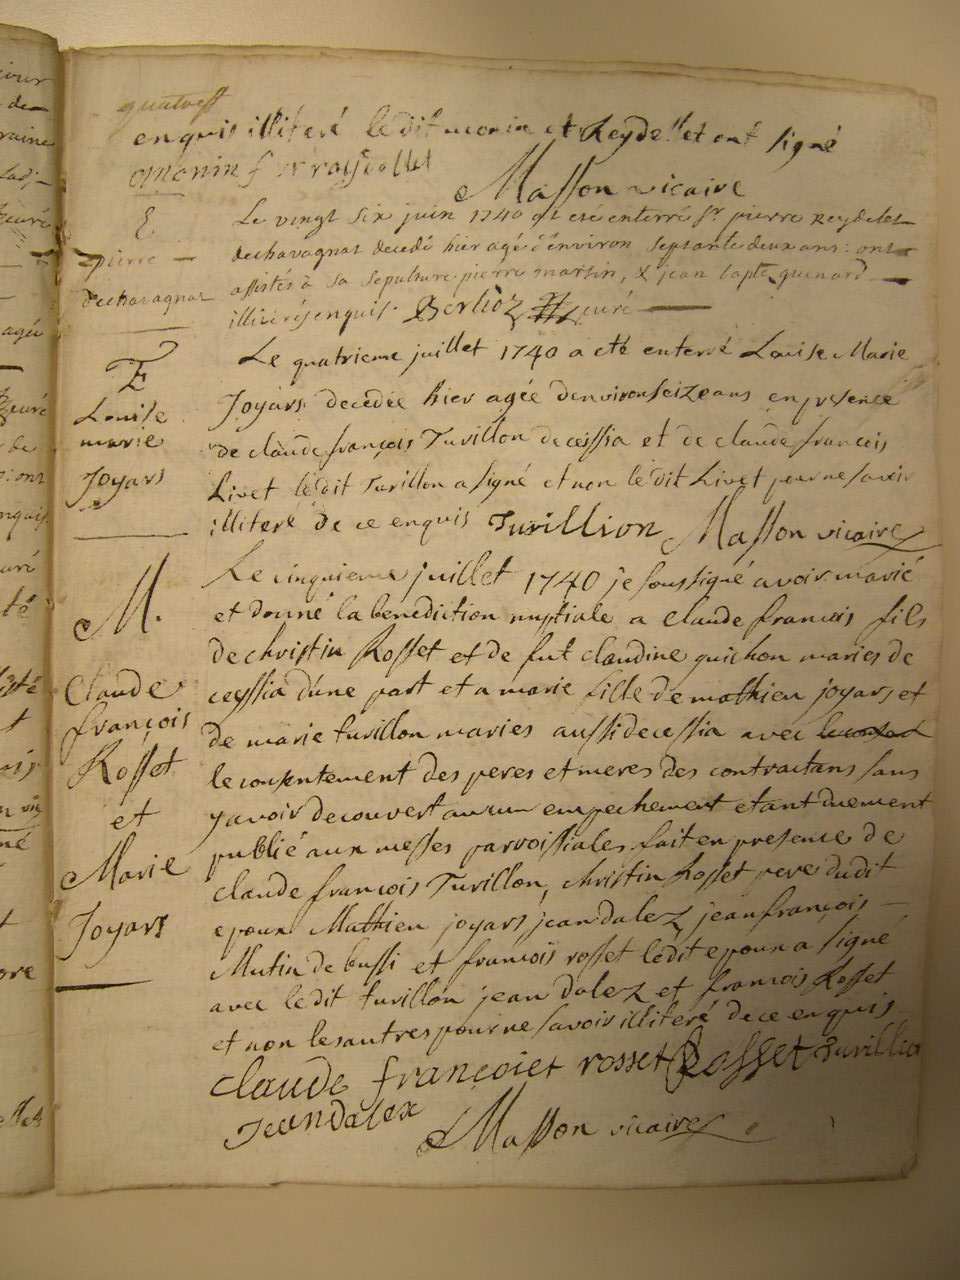 enquis illiteré le dit monin et Reydellet ont signé
C monin f reydellet
Masson vicaire
E
pierre
dechavagnat
Le vingt six juin 1740 at eté enterré Sr. pierre Reydelet
dechavagnat decedé hier agé d'environ septante deux ans: ont
assistés à sa sepulture pierre martin, & jean bapte. guenard
illiterés enquis. Berlioz curé
E
Louise
marie
Joyars
Le quatrieme juillet 1740 a eté enterré Louise Marie
Joyars decedée hier agée denvironseizeans en presence
de claude françois Turillon decessia et de claude francois
Livet le dit Turillon a signé et non le dit Livet pour ne savoir
illiteré de ce enquis Turillion Masson vicaire
M.
Claude
françois
Rosset
et
Marie
Joyars
Le cinquieme juillet 1740 je soussigné avoir marié
et donné la benediction nuptiale a claude francois fils
de christin Rosset et de fut claudine guichon maries de
cessia d'une part et a marie fille de mathieu joyars et
de marie turillon maries aussi decessia avec
le consentement des peres et meres des contractans sans
y avoir decouvert aucun empechement etant duement
publié aux messes parroissiales fait en presence de
claude françois Turillon, christin Rosset pere dudit
epoux Mathieu joyars, jean dalez, jeanfrançois
Mutin de bussi et françois rosset le dit epoux a signé
avec le dit turillon jean dalez et francois Rosset
et non les autres pour ne savoir illiteré de ce enquis
claude françoiet rosset Rosset Turillion
Jean dalex
Masson vicaire